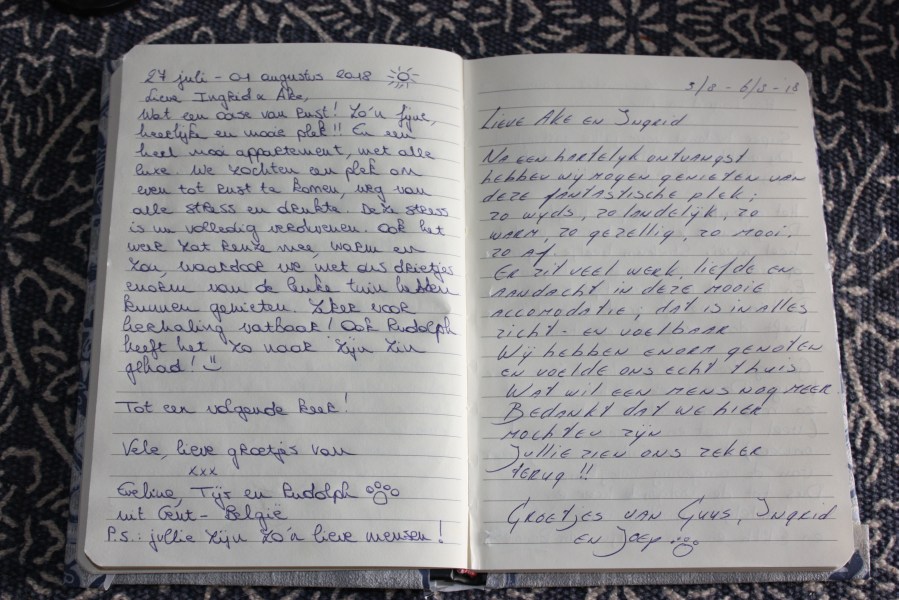 27 juli - 01 augustus 2018
Lieve Ingrid & Ake,
Wat een oase van rust! Zo'n fijne,
heerlijke en mooie plek!! En een
heel mooi appartement, met alle
luxe. We zochten een plek om
even tot rust te komen, weg van
alle stress en drukte. Deze stress
is nu volledig verdwenen. Ook het
weer zat reuze mee, warm en
zon, waardoor we met ons drietjes
enorm van de leuke tuin hebben
kunnen genieten. Zeker voor
herhaling vatbaar! Ook Rudolph
heeft het zo naar zijn zin
gehad!
Tot een volgende keer!
Vele, lieve groetjes van
xxx
Eveline, Tijs en Rudolph
uit Gent - België
P.s.: jullie zijn zo'n lieve mensen!
3/8 - 6/8 - 18
Lieve Ake en Ingrid
Na een hartelyk ontvangst
hebben wy mogen genieten van
deze fantastische plek;
zo wyds, zo landelijk, zo
warm, zo gezellig, zo mooi,
zo af.
Er zit veel werk, liefde en
aandacht in deze mooie
accomodatie; dat is in alles
zicht- en voelbaar
Wij hebben enorm genoten
en voelde ons echt thuis
Wat wil een mens nog meer
Bedankt dat we hier
mochten zijn
Jullie zien ons zeker
terug!!
Groetjes van Guus, Ingrid
en Joep